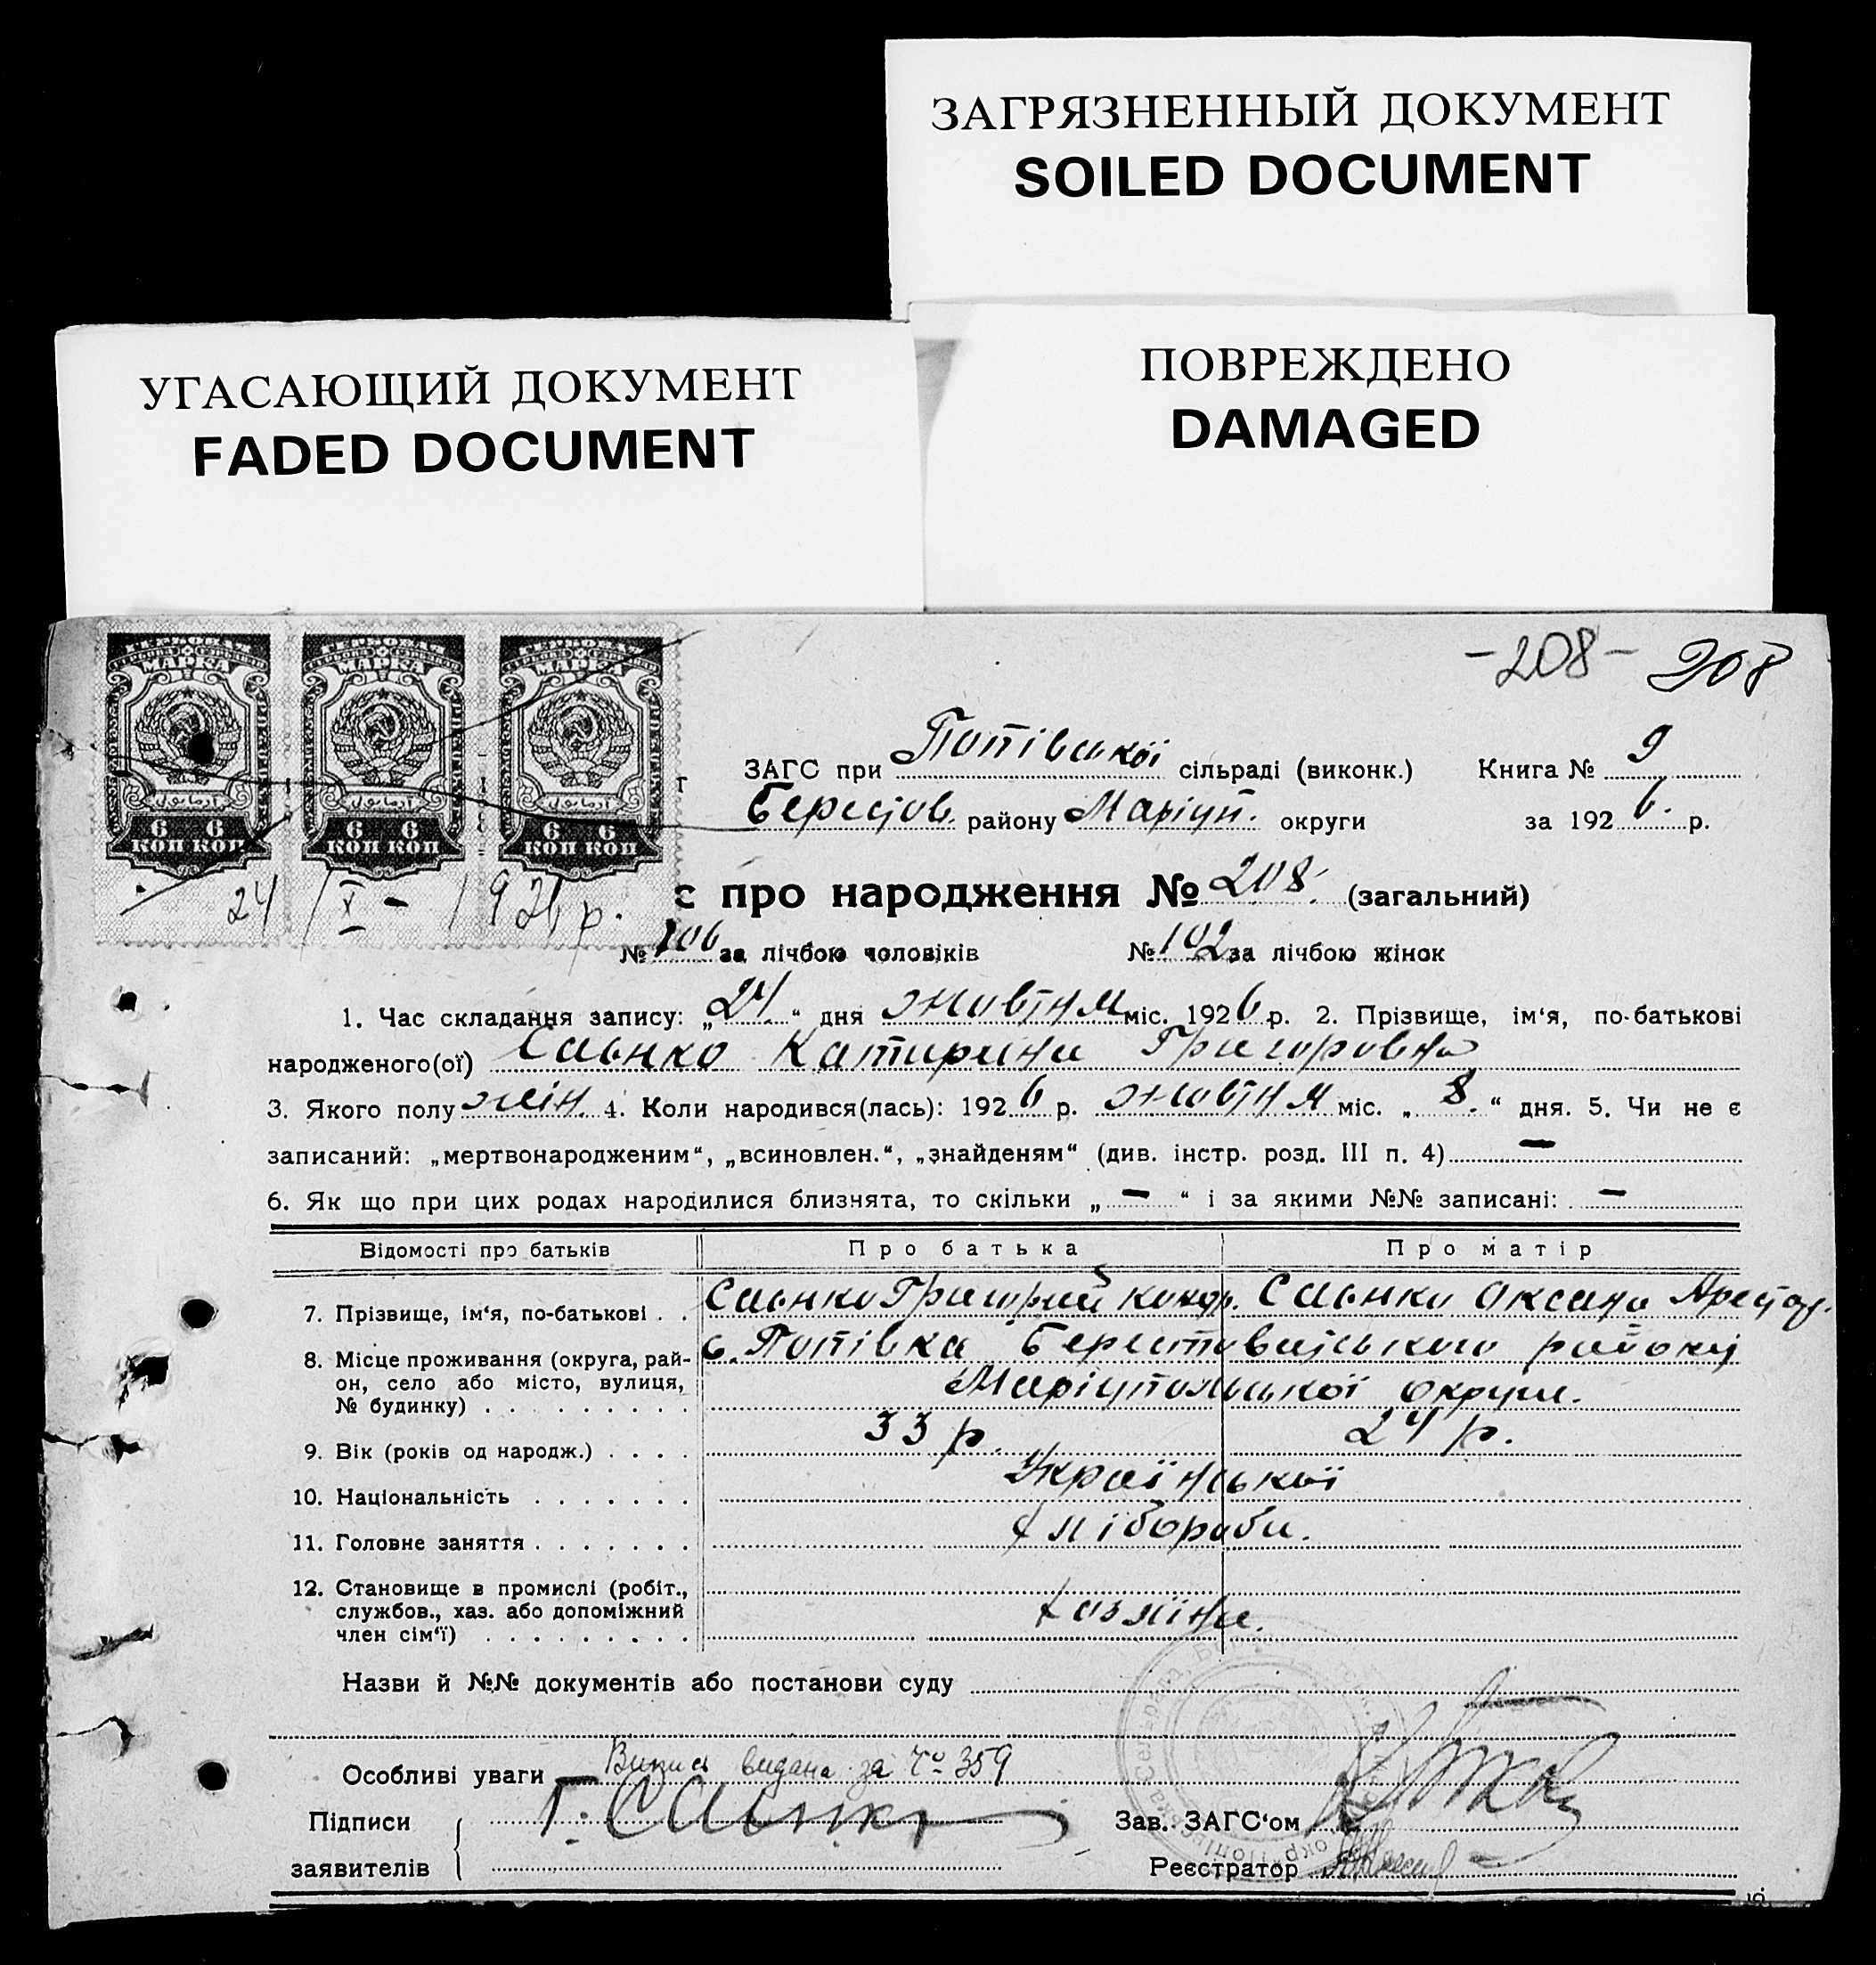 ЗАГРЯЗНЕННЫЙ ДОКУМЕНТ
SOILED DOCUMENT
УГАСАЮЩИЙ ДОКУМЕНТ
FADED DOCUMENT
ПОВРЕЖДЕНО
DAMAGED
-208- 208
МАРКА МАРКА МАРКА
6 6 6 6 6 6
КОП КОП КОП КОП КОП КОП
24/X - 1926 р.
ЗАГС при Попівської сільраді (виконк.) Книга № 9
Берестов. району Маріуп. округи за 1926. р.
с про народження № 208. (загальний)
№ 106 за лічбою чоловіків № 102 за лічбою жінок
1. Час складання запису: „24“ дня жовтня міс. 1926 р. 2. Прізвище, ім‘я, по-батькові
народженого(ої) Саєнко Катирина Григоровна
3. Якого полу жін. 4. Коли народився(лась): 1926 р. жовтня міс. „8.“ дня. 5. Чи не є
записаний: „мертвонародженим“, „всиновлен.“, „знайденям“ (див. інстр. розд. III п. 4) —
6. Як що при цих родах народилися близнята, то скільки „ — “ і за якими №№ записані: —
Відомості про батьків Про батька Про матір
7. Прізвище, ім‘я, по-батькові . . Саєнко Григорій Саєнко Оксана
8. Місце проживання (округа, рай- с. Попівка Берестовайського району
он, село або місто, вулиця, Маріупольської округи.
№ будинку) . . . . . . . . .
9. Вік (років од народж.) . . . . 33 р. 24 р.
10. Національність . . . . . . . Української
11. Головне заняття . . . . . . . Хлібороби.
12. Становище в промислі (робіт.,
службов., хаз. або допоміжний Хазяїни.
член сім‘ї) . . . . . . . . .
Назви й №№ документів або постанови суду
Особливі уваги — Випись видана за № 359
Підписи Г. Саєнко Зав. ЗАГС‘ом
заявителів Реєстратор